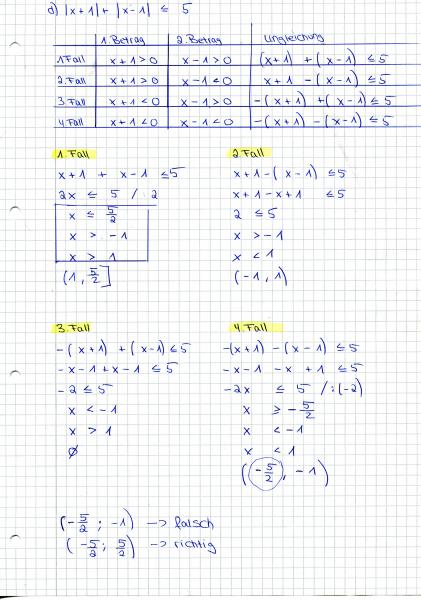 d) |x+1| + |x-1| ≤ 5
1. Betrag 2. Betrag Ungleichung
1. Fall x+1>0 x-1>0 (x+1) + (x-1) ≤ 5
2. Fall x+1>0 x-1<0 x+1 - (x-1) ≤ 5
3. Fall x+1<0 x-1>0 -(x+1) + (x-1) ≤ 5
4. Fall x+1<0 x-1<0 -(x+1) - (x-1) ≤ 5
1. Fall
x+1 + x-1 ≤ 5
2x ≤ 5 / 2
x ≤ 5/2
x > -1
x > 1
(1, 5/2]
2. Fall
x+1-(x-1) ≤ 5
x+1-x+1 ≤ 5
2 ≤ 5
x > -1
x < 1
(-1, 1)
3. Fall
-(x+1) + (x-1) ≤ 5
-x-1+x-1 ≤ 5
-2 ≤ 5
x < -1
x > 1
ø
4. Fall
-(x+1) - (x-1) ≤ 5
-x-1 -x +1 ≤ 5
-2x ≤ 5 /:(-2)
x ≥ -5/2
x < -1
x < 1
(-5/2, -1)
(-5/2; -1) --> falsch
(-5/2; 5/2) --> richtig